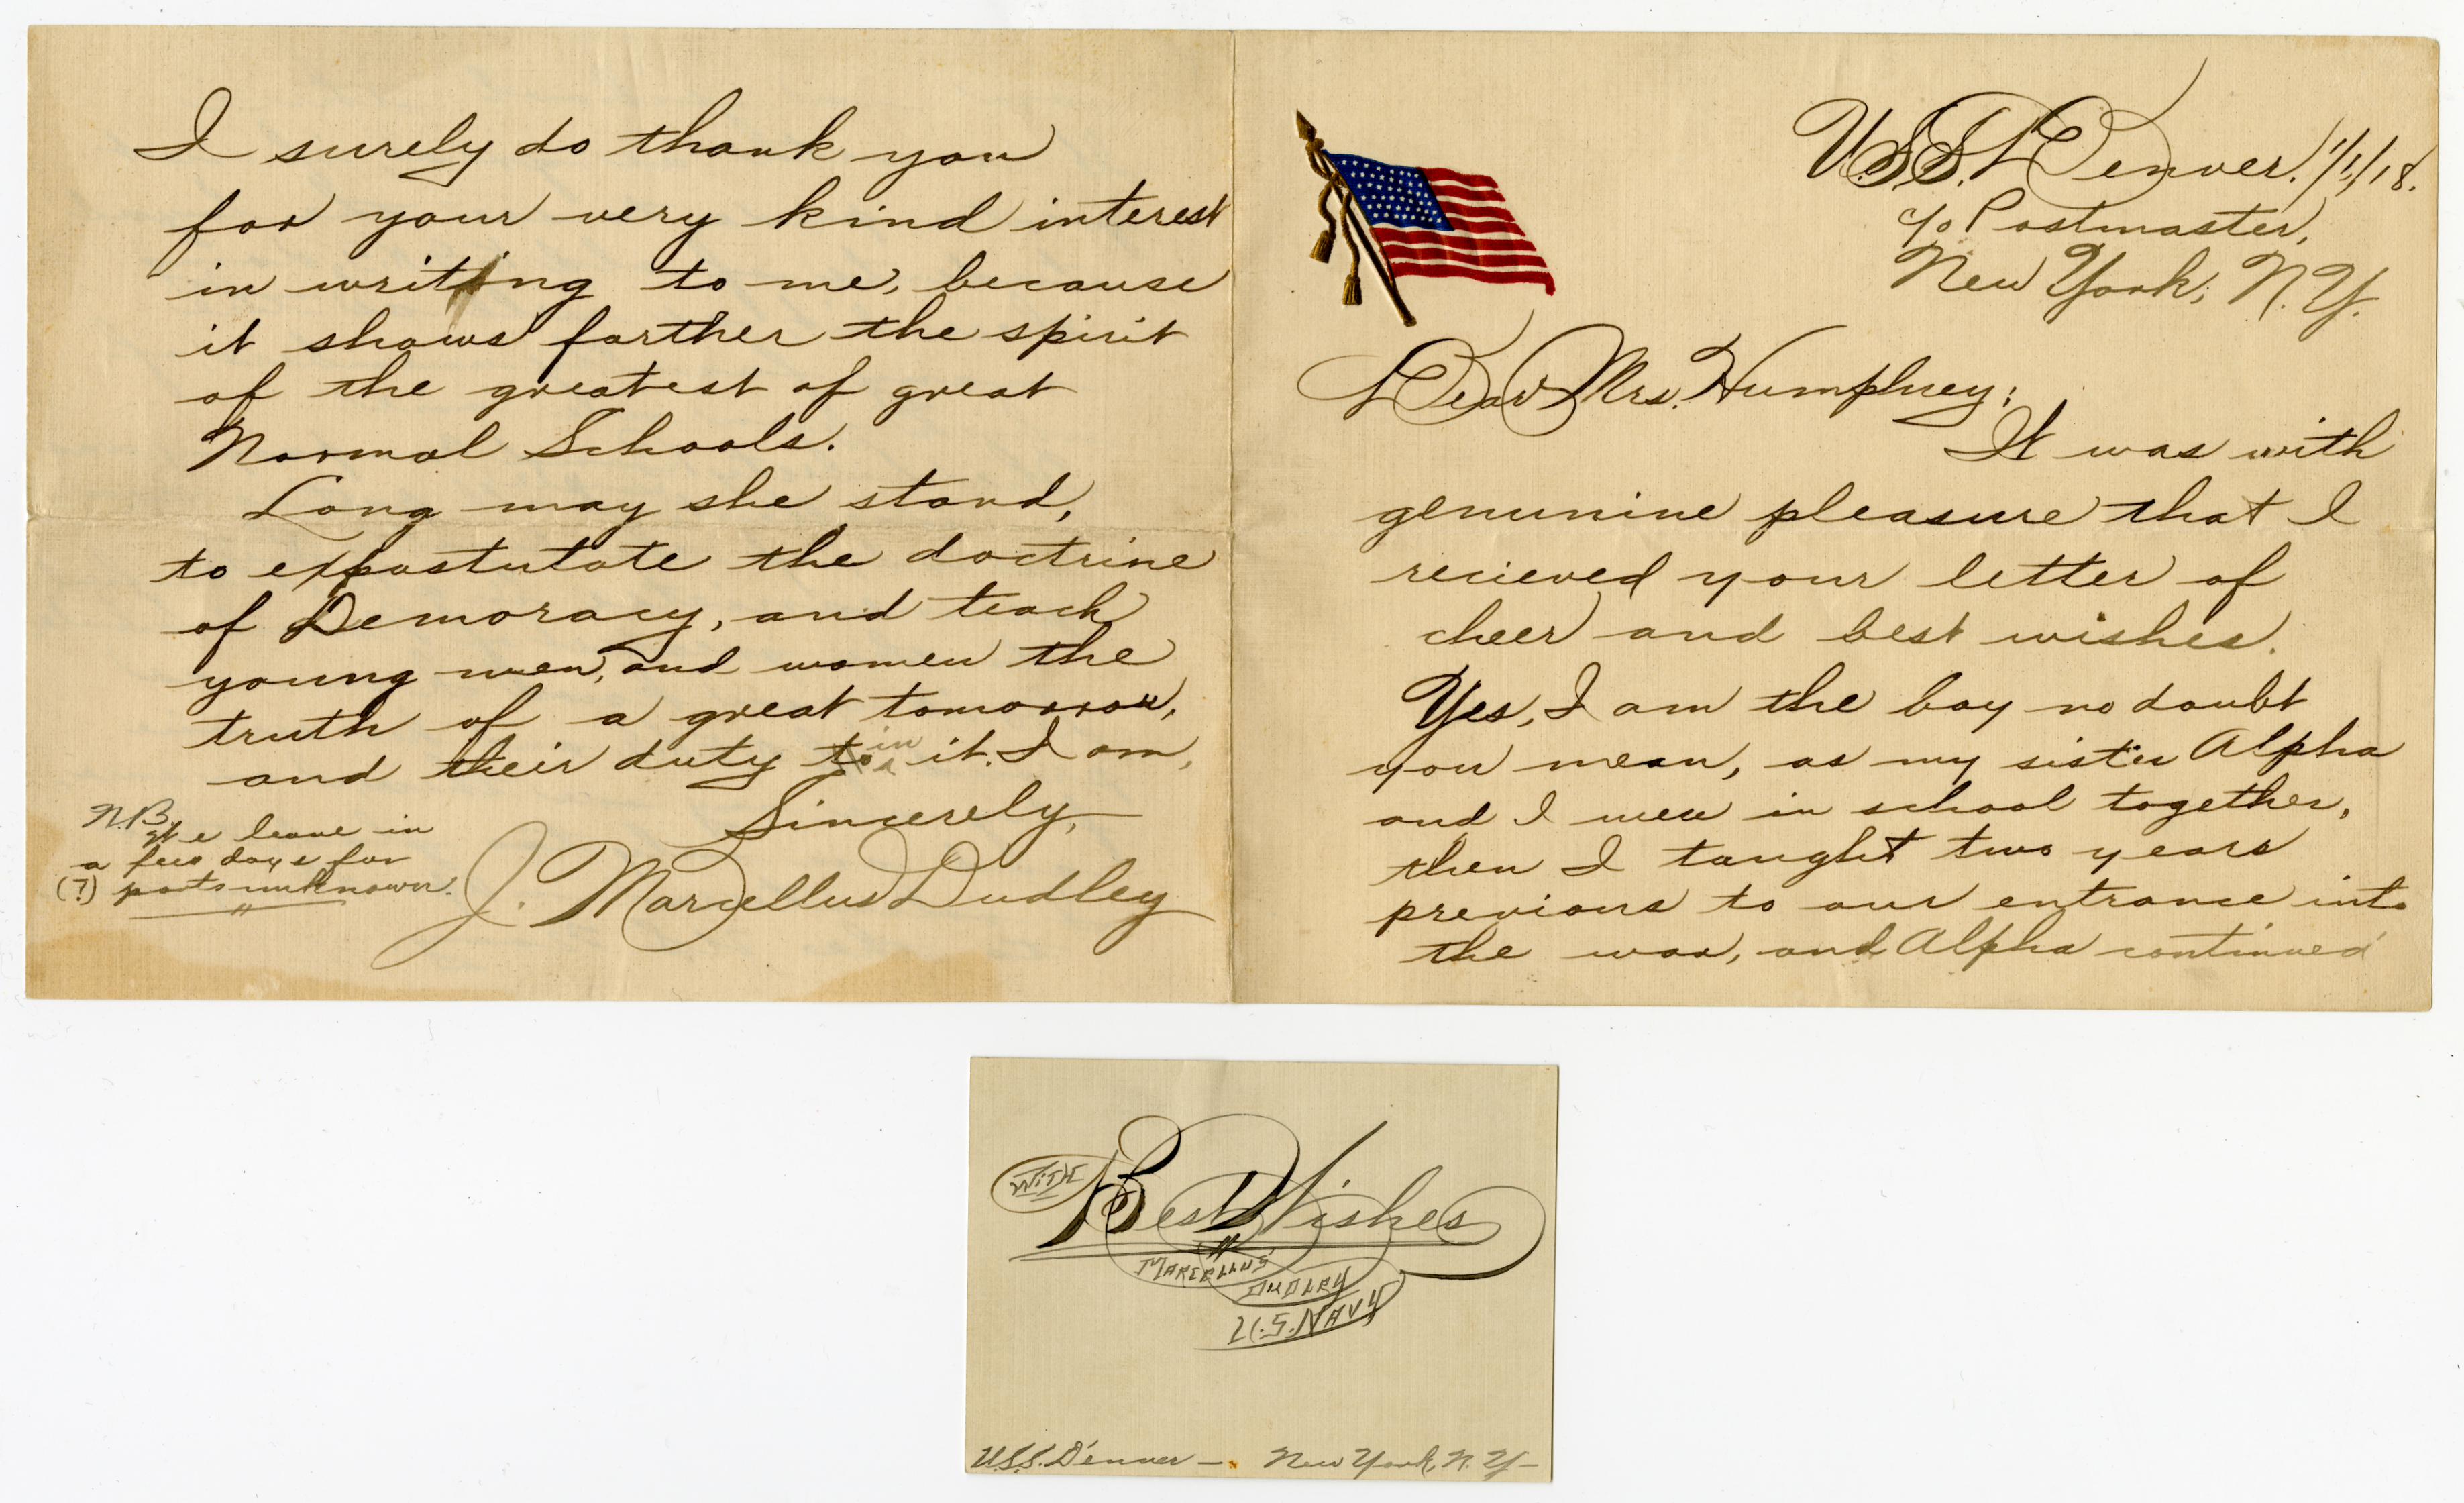 U.S.S. Denver. 1/1/18.
c/o Postmaster,
New York, N.Y.
Dear Mrs. Humphrey;
It was with
genunine pleasure that I
recieved your letter of
cheer and best wishes.
Yes, I am the boy no doubt
you mean, as my sister Alpha
and I were in school together,
then I taught two years
previous to our entrance into
the war, and Alpha continued
I surely do thank you
for your very kind interest
in writing to me, because
it shows farther the spirit
of the greatest of great
Normal Schools.
Long may she stand,
to expostutate the doctrine
of Demoracy, and teach
young men, and women the
truth of a great tomorrow,
and their duty to in it. I am,
Sincerely,
J. Marcellus Dudley
N.B.
We leave in
a few days for
(?) parts unknown.
With Best Wishes
Marcellus
Dudley
U.S. Navy
U.S.S. Denver — New York, N.Y —